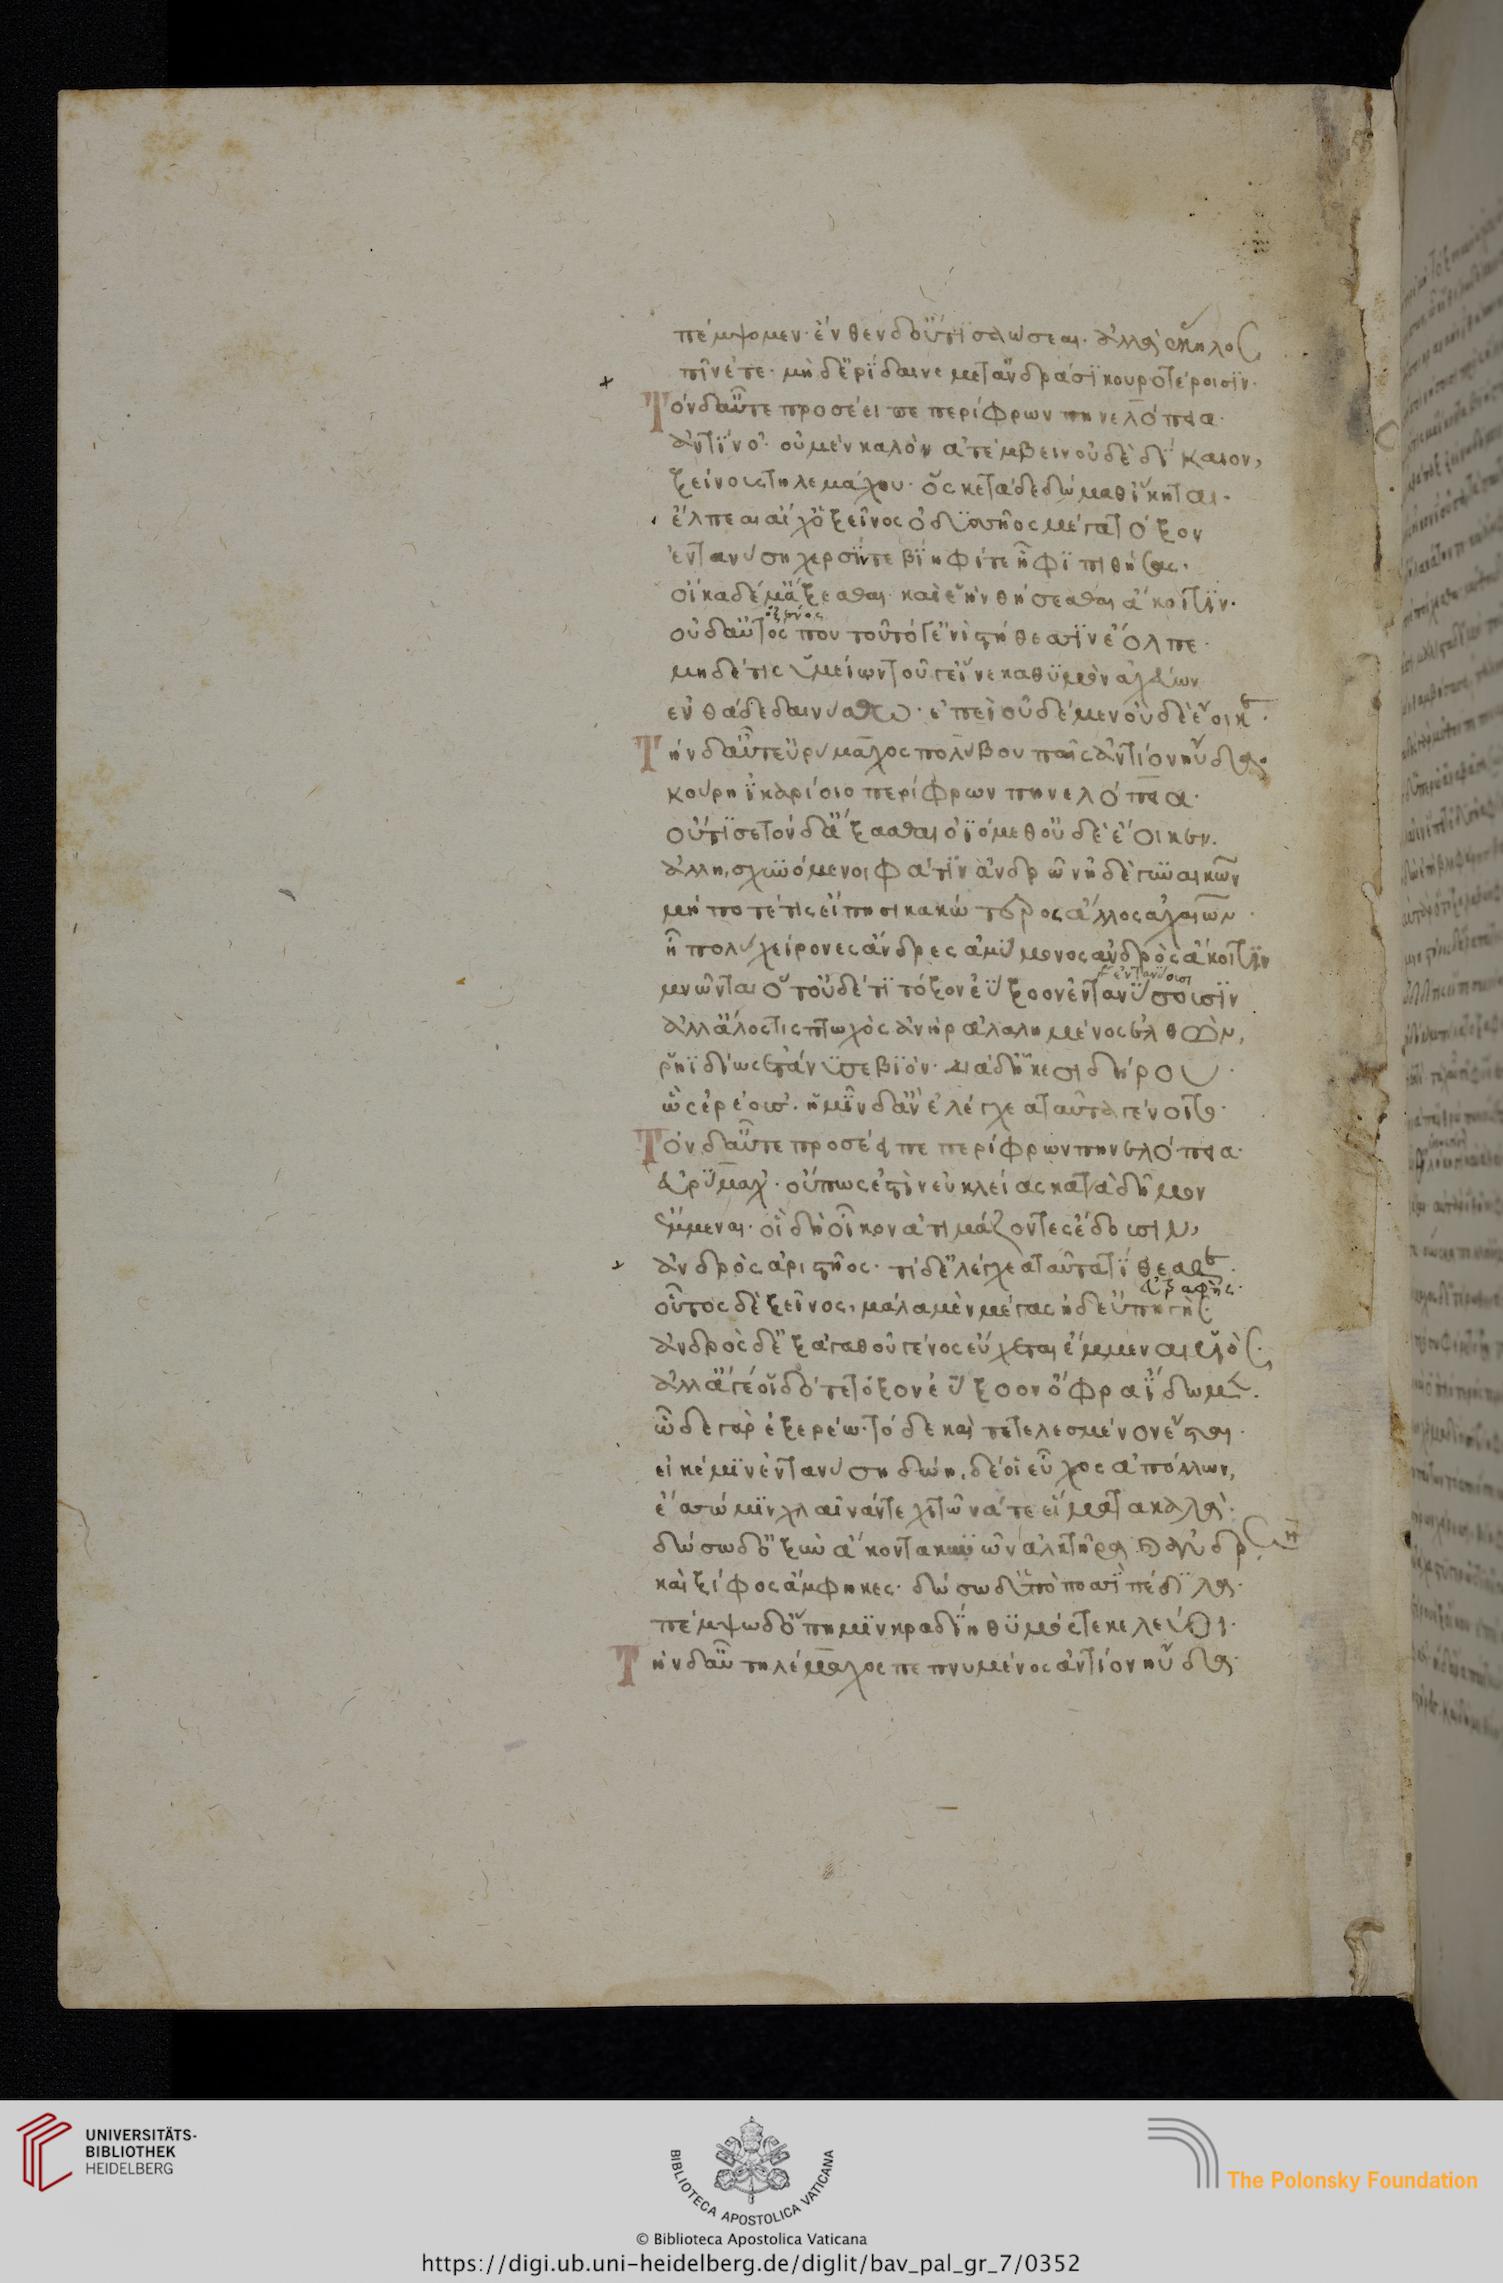 πέμψομεν· ἔνθεν δ' οὔτι σαώσεαι· ἀλλὰ ἕκηλος
πῖνέ τε· μὴ δ' ἐρίδαινε μετ' ἀνδράσι κουροτέροισιν·
Τὸν δ' αὖτε προσέειπε περίφρων πηνελόπεια·
ἀντίνο'· οὐ μὲν καλὸν ἀτέμβειν οὐδὲ δίκαιον,
ξείνους τηλεμάχου· ὅς κε τάδε δώμαθ' ἵκηται·
ἔλπεαι αἴ χ' ὁ ξεῖνος ὀδυσσῆος μέγα τόξον
ἐντανύσῃ χερσίν τε βίηφί τε ἧφι πιθήσας·
οἴκαδέ μ' ἄξεσθαι· καὶ ἑὴν θήσεσθαι ἄκοιτιν·
ὁ ξένος
οὐδ' αὐτός που τοῦτό γ' ἐνὶ στήθεσσιν ἔολπε·
μηδέ τις ὑμείων τοῦ γ' εἵνεκα θυμὸν ἀχεύων
ἐνθάδε δαινύσθω· ἐπεὶ οὐδὲ μὲν οὐδὲ ἔοικε·
Τὴν δ' αὖτ' εὐρύμαχος πολύβου παῖς ἀντίον ηὔδα·
κούρη ἰκαρίοιο περίφρων πηνελόπεια·
οὔτι σε τόνδ' ἄξασθαι ὀϊόμεθ' οὐδὲ ἔοικεν·
ἀλλ' αἰσχυνόμενοι φάτιν ἀνδρῶν ἠδὲ γυναικῶν
μή ποτέ τις εἴπῃσι κακώτερος ἄλλος ἀχαιῶν·
ἦ πολὺ χείρονες ἄνδρες ἀμύμονος ἀνδρὸς ἄκοιτιν
ἐντανύουσι
μνῶνται οὐ τοὐδέ τι τόξον ἐΰξοον ἐντανύσουσιν
ἀλλ' ἄλλός τις πτωχὸς ἀνὴρ ἀλαλημένος ἐλθὼν,
ῥηϊδίως ἐτάνυσε βιὸν· διὰ δ' ἧκε σιδήρου·
ὣς ἐρέουσ'· ἡμῖν δ' ἂν ἐλέγχεα ταῦτα γένοιτο·
Τὸν δ' αὖτε προσέειπε περίφρων πηνελόπεια·
εὐρύμαχ'· οὔπως ἐστὶν ἐϋκλείας κατὰ δῆμον
ἔμμεναι· οἳ δὴ οἶκον ἀτιμάζοντες ἔδουσιν,
ἀνδρὸς ἀριστῆος· τί δ' ἐλέγχεα ταῦτα τίθεσθε·
οὗτος δὲ ξεῖνος, μάλα μὲν μέγας ἠδ' εὐπηγής·
ἀνδρὸς δ' ἐξ ἀγαθοῦ γένος εὔχεται ἔμμεναι υἱός·
ἀλλ' ἄγε οἱ δότε τόξον ἐΰξοον ὄφρα ἴδωμεν·
ὧδε γὰρ ἐξερέω· τὸ δὲ καὶ τετελεσμένον ἔσται·
εἴ κέ μιν ἐντανύσῃ δώῃ, δέ οἱ εὖχος ἀπόλλων,
ἕσσω μιν χλαῖνάν τε χιτῶνά τε εἵματα καλά·
δώσω δ' ὀξὺν ἄκοντα κυνῶν ἀλκτῆρα καὶ ἀνδρῶν
καὶ ξίφος ἄμφηκες· δώσω δ' ὑπὸ ποσσὶ πέδιλα·
πέμψω δ' ὅππη μιν κραδίη θυμός τε κελεύει·
Τὴν δ' αὖ τηλέμαχος πεπνυμένος ἀντίον ηὔδα·
UNIVERSITÄTS-
BIBLIOTHEK
HEIDELBERG
BIBLIOTECA APOSTOLICA VATICANA
The Polonsky Foundation
© Biblioteca Apostolica Vaticana
https://digi.ub.uni-heidelberg.de/diglit/bav_pal_gr_7/0352